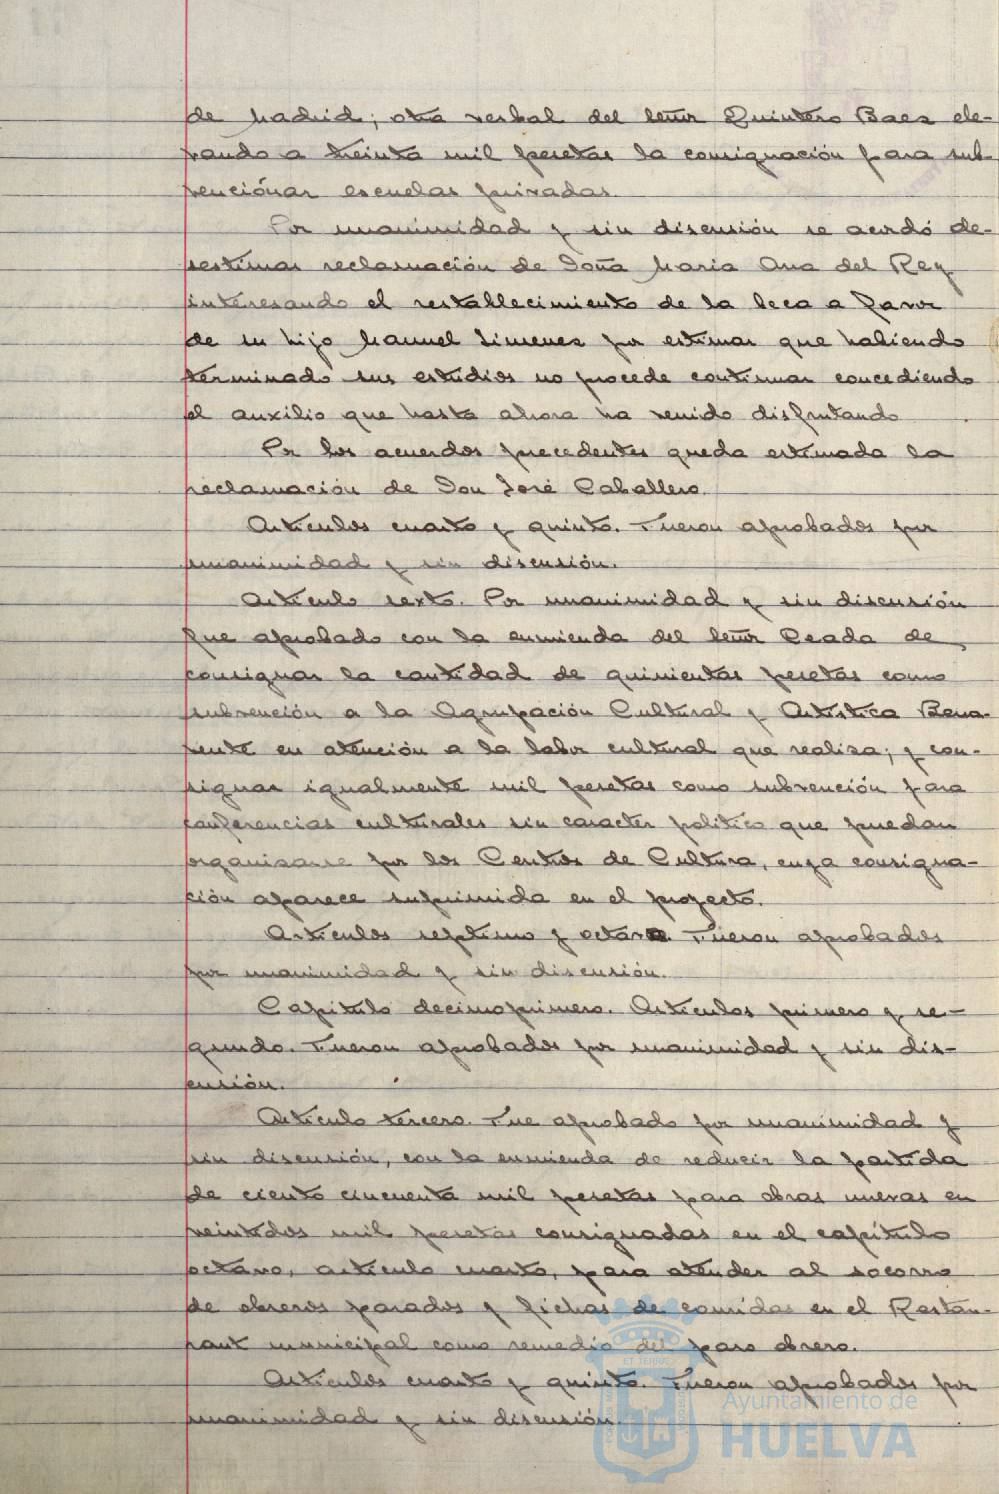 de Madrid; otra verbal del señor Quintero Baez ele-
vando a treinta mil pesetas la consignación para sub-
venciónar escuelas privadas.
Por unanimidad y sin discusión se acordó de-
sestimar reclamación de Doña Maria Ana del Rey
interesando el restablecimiento de la beca a favor
de su hijo Manuel Simenez por estimar que habiendo
terminado sus estudios no procede continuar concediendo
el auxilio que hasta ahora ha venido disfrutando
Por los acuerdos precedentes queda estimada la
reclamación de Don José Caballero.
Articulos cuarto y quinto. Fueron aprobados por
unanimidad y sin discusión.
Articulo sexto. Por unanimidad y sin discusión
fue aprobado con la enmienda del señor Peada de
consignar la cantidad de quinientas pesetas como
subvención a la Agrupación Cultural y Artistica Bena-
vente en atención a la labor cultural que realiza; y con-
signar igualmente mil pesetas como subvención para
conferencias culturales sin caracter politico que puedan
organizarse por los Centros de Cultura, cuya consigna-
ción aparece suprimida en el proyecto.
Articulos septimo y octavo. Fueron aprobados
por unanimidad y sin discusión.
Capitulo decimoprimero. Articulos primero y se-
gundo. Fueron aprobados por unanimidad y sin dis-
cusión.
Articulo tercero. Fue aprobado por unanimidad y
sin discusión, con la enmienda de reducir la partida
de ciento cincuenta mil pesetas para obras nuevas en
veintidos mil pesetas consignadas en el capítulo
octavo, articulo cuarto, para atender al socorro
de obreros parados y fichas de comidas en el Restau-
rant municipal como remedio del paro obrero.
Articulos cuarto y quinto. Fueron aprobados por
unanimidad y sin discusión.
Ayuntamiento de
HUELVA